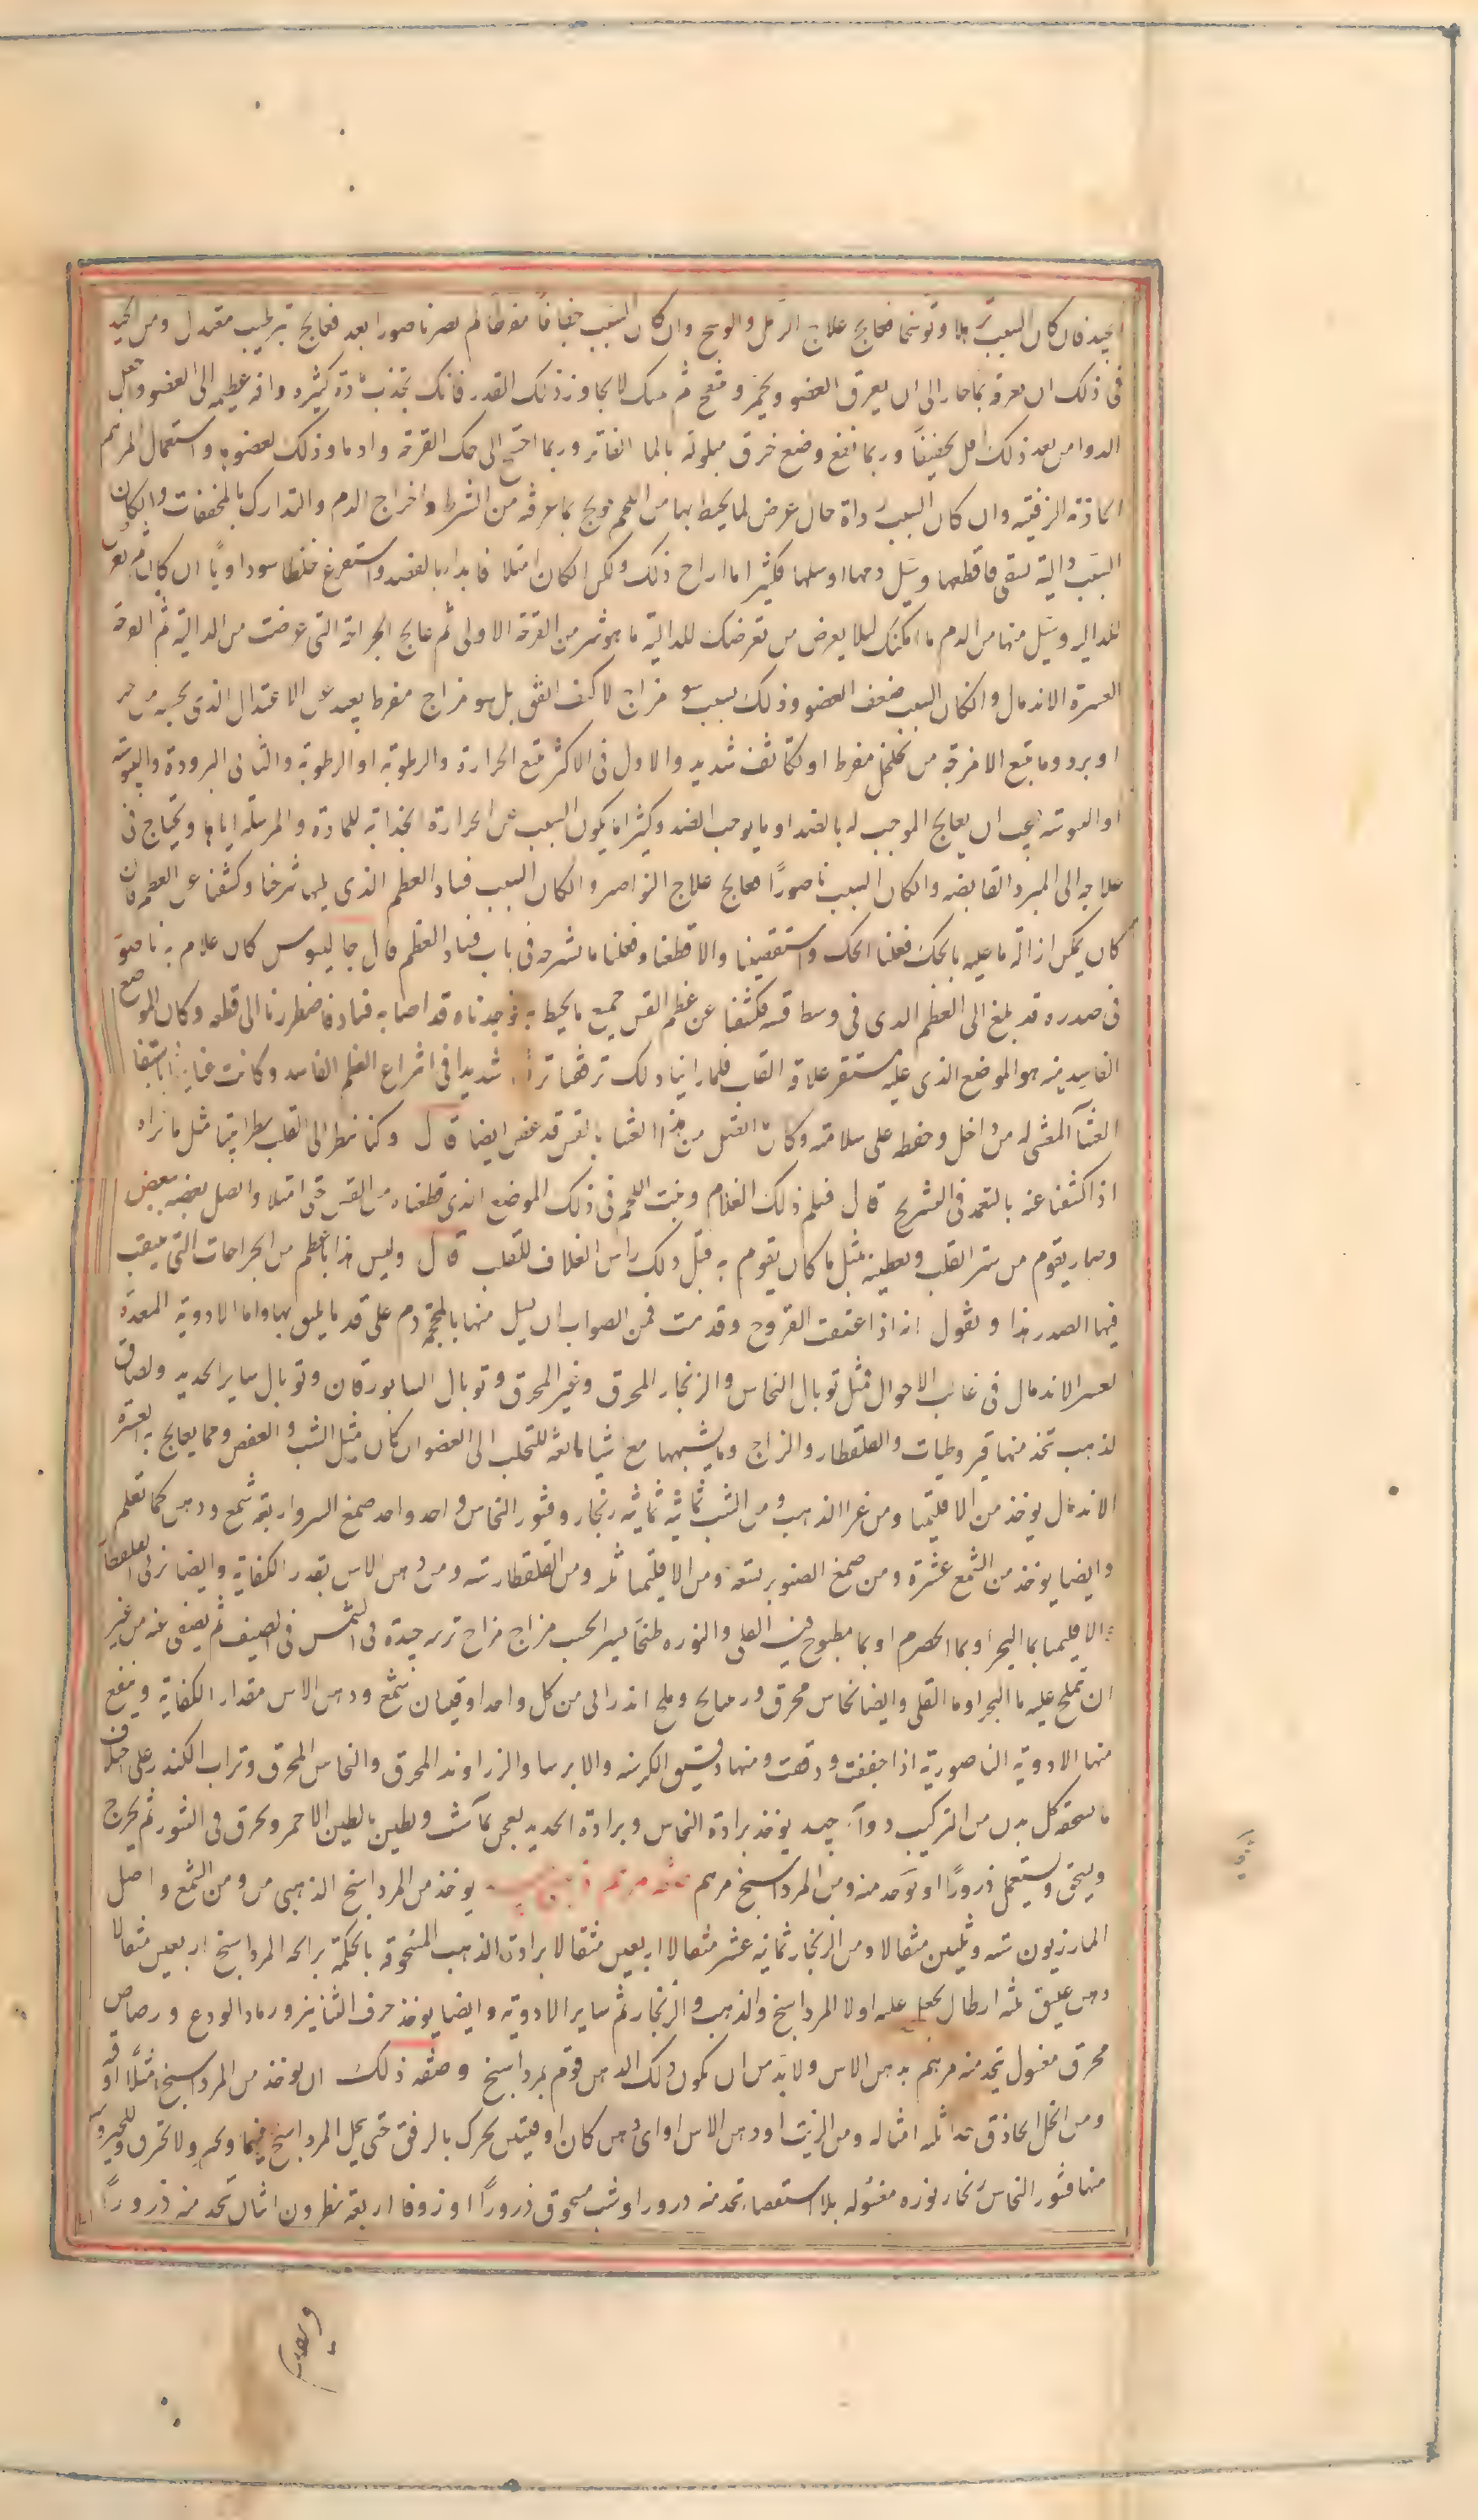 الجيد فان كان السبب ترهلا وتوسخا فعالج علاج الرهل والوسخ وان كان السبب جفافا مفرطا لم يصر ناصورا بعد فعالج بترطيب معتدل ومن الجيد
فى ذلك ان تعرقه بماء حار الى ان يعرق العضو ويحمر وينتفخ ثم تمسك لا تجاوز ذلك القدر فانك تجذب مادة كثيرة وآفة عظيمة الى العضو واجعل
الدواء من بعد ذلك اقل تجفيفا وربما نفع وضع خرق مبلولة بالماء الفاتر وربما احتيج الى حك القرحة وادماء وذلك لعضوه واستعمال المراهم
الجاذبة الزفتية وان كان السبب رداة حال عرض لما يحيط بها من اللحم عولج بما عرفته من الشرط واخراج الدم والتدارك بالمجففات وان كان
السبب دالية تسقى فاقطعها وسيل دمها او سلها فكثيرا ما اراح ذلك ولكن ان كان امتلاء فابدا بالفصد واستفرغ خلطا سوداويا ان كان ثم تعرض
للدالية وسيل منها من الدم ما امكنك لئلا يعرض من تعرضك للدالية ما هو شر من القرحة الاولى ثم عالج الجراحة التى عرضت من الدالية ثم القرحة
العسرة الاندمال وان كان السبب ضعف العضو وذلك بسبب سوء مزاج لا كيف اتفق بل سوء مزاج مفرط بعيد عن الاعتدال الذى بحسبه من حر
او برد وما يتبع الامزجة من تخلخل مفرط او تكاثف شديد والاول فى الاكثر يتبع الحرارة والرطوبة او الرطوبة والثانى البرودة واليبوسة
او اليبوسة فيجب ان يعالج الموجب له بالضد او بما يوجب الضد وكثيرا ما يكون السبب عن الحرارة الجذابة للمادة والمرسلة اياها ويحتاج فى
علاجه الى المبرد القابضة وان كان السبب ناصورا فعالج علاج النواصير وان كان السبب فساد العظم الذى يليها شرحنا وكشفنا عن العظم فان
كان يمكن ازالة ما عليه بالحك فعلنا الحك واستقصينا والا قطعنا وفعلنا ما نشرحه فى باب فساد العظم قال جالينوس كان غلام به ناصور
فى صدره قد بلغ الى العظم الذى فى وسط قصه فكشفنا عن عظم القص جميع ما يحيط به فوجدناه قد اصابه فساد فاضطررنا الى قطعه وكان الموضع
الفاسد منه هو الموضع الذى عليه مستقر علاقة القلب فلما راينا ذلك ترفقنا ترفقا شديدا فى انتزاع العظم الفاسد وكانت عنايتنا باستبقاء
الغشاء المغشى له من داخل وحفظه على سلامته وكان ما اتصل من هذا الغشاء بالقص قد عفن ايضا قال وكنا ننظر الى القلب نظرا بينا مثل ما نراه
اذا كشفنا عنه بالتعمد فى التشريح قال فسلم ذلك الغلام ونبت اللحم فى ذلك الموضع الذى قطعناه من القص حتى امتلا واتصل بعضه ببعض
وصار يقوم من ستر القلب وتغطيته بمثل ما كان يقوم به قبل ذلك راس الغلاف للقلب قال وليس هذا باعظم من الجراحات التى ينقب
فيها الصدر هذا ونقول انه اذا عتقت القروح وقدمت فمن الصواب ان يسيل منها بالمحجمة دم على قدر ما يليق بها واما الادوية المعدة
لعسر الاندمال فى غالب الاحوال فمثل توبال النحاس والزنجار المحرق وغير المحرق وتوبال السابورقان وتوبال ساير الحديد ولصاق
الذهب تتخذ منها قيروطيات والقلقطار والزاج وما يشبهها مع اشيا مانعة للتحلب الى العضو ان كان مثل الشب والعفص ومما يعالج به العسرة
الاندمال يوخذ من الاقليميا ومن غرا الذهب ومن الشب ثمانية ثمانية زنجار وقشور النحاس واحد واحد صمغ السرو اربعة شمع ودهن كما تعلم
وايضا يوخذ من الشمع عشرة ومن صمغ الصنوبر تسعة ومن الاقليميا ثلثه ومن القلقطار سته ومن دهن الاس بقدر الكفاية وايضا نربى القلقطار
الاقليميا بماء البحر او بماء الحصرم او بماء مطبوخ فيه القلى والنوره طبخا يسيرا بحسب مزاج مزاج تربية جيدة فى الشمس فى الصيف ثم يصفى عنه من غير
ان تملح عليه ماء البحر او ماء القلى وايضا نحاس محرق ورصاص وملح اندرانى من كل واحد اوقيتان شمع ودهن الاس مقدار الكفاية وينفع
منها الادوية الناصورية اذا جففت ودقت ومنها دقيق الكرسنه والايرسا والزراوند المحرق والنحاس المحرق وتراب الكندر على اختلاف
ما يستحقه كل بدن من التركيب دواء جيد يوخذ برادة النحاس وبرادة الحديد يعجن بماء الشب ويطين بالطين الاحمر ويحرق فى التنور ثم يخرج
ويسحق ويستعمل ذرورا او يتخذ منه ومن المرداسنج مرهم يوخذ من المرداسنج الذهبى من ومن الشمع واصل
المازريون ستة وثلثين مثقالا ومن الزنجار ثمانية عشر مثقالا اربعين مثقالا برادة الذهب المسحوقة بالحكمة برائحة المرداسنج اربعين مثقالا
دهن عتيق ثلثه ارطال يجعل عليه اولا المرداسنج والذهب والزنجار ثم ساير الادوية وايضا يوخذ خزف التنانير ورماد الودع ورصاص
محرق مغسول يتخذ منه مرهم بدهن الاس ولا بد من ان يكون ذلك الدهن قوم بمرداسنج وصفة ذلك ان يوخذ من المرداسنج مثلا اوقيه
ومن الخل الحاذق جدا ثلثه امثاله ومن الزيت او دهن الاس او اى دهن كان اوقيتين يحرك بالرفق حتى يحل المرداسنج فيهما ويخثر ولا يحترق
منها قشور النحاس زنجار نوره مغسوله بلا استقصاء يتخذ منه ذرورا وشب مسحوق ذرورا او زوفا اربعة نطرون امثال يتخذ منه ذرورا